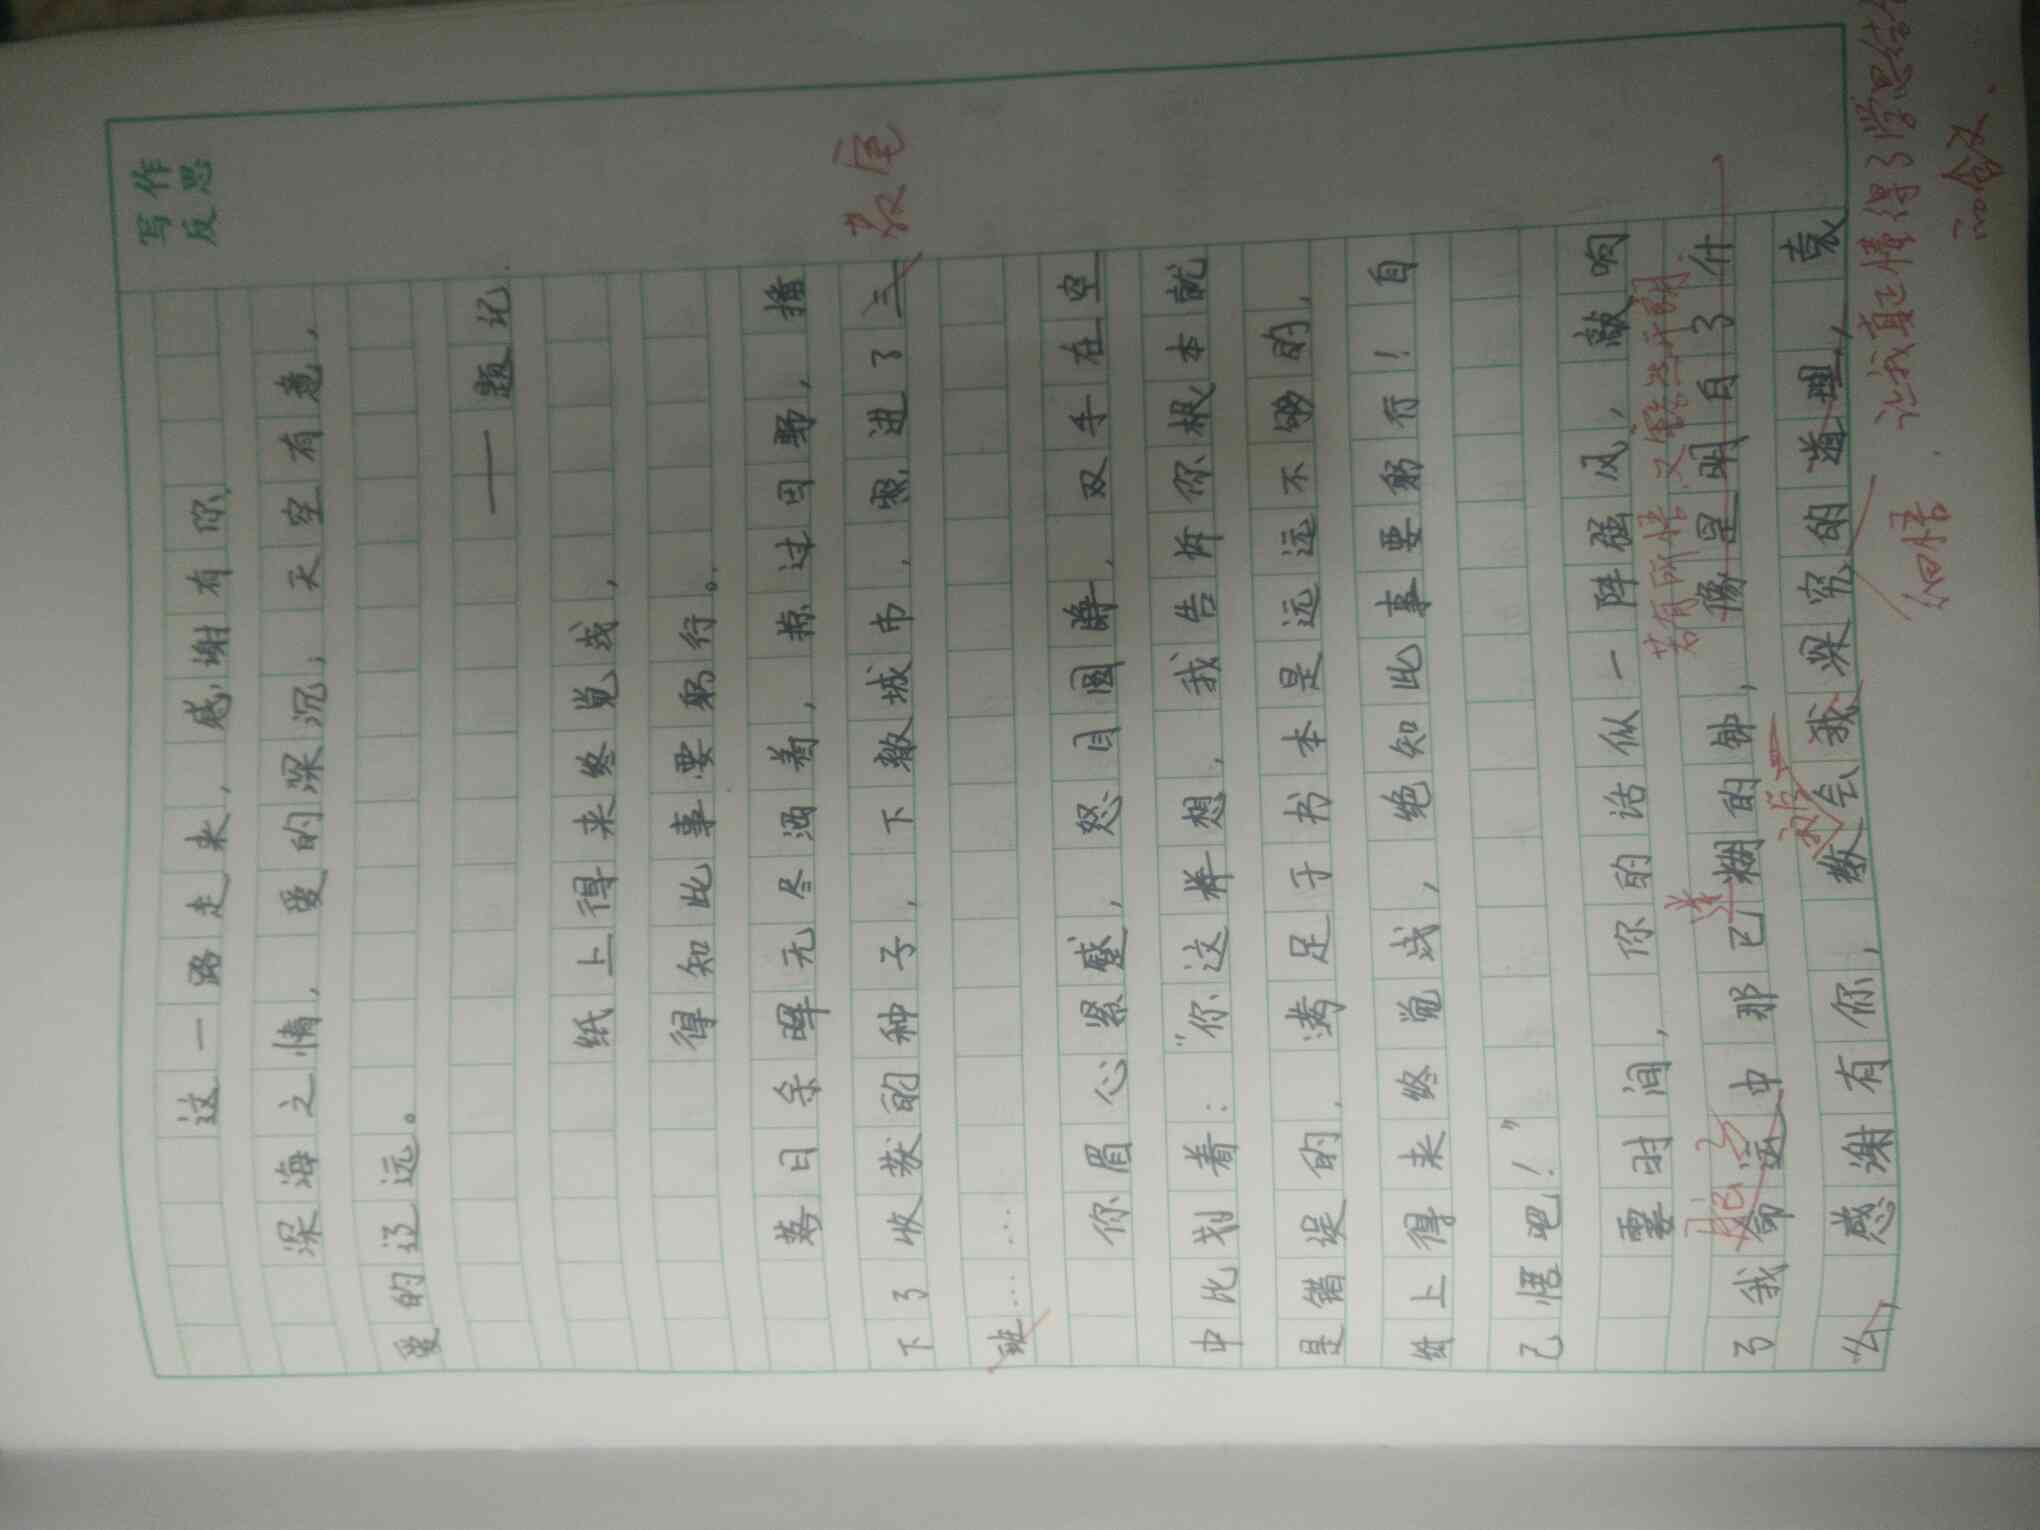 写作
反思
这一路走来，感谢有你
深海之情，爱的深沉；天空有意，
爱的辽远。
——题记
纸上得来终觉浅，
得知此事要躬行。
暮日余晖无尽洒着，掠过田野，播
下了收获的种子，下散城市，惠进了三
教室
班……
你眉心紧蹙，怒目圆睁，双手在空
中比划着：“你这样想，我告诉你根本就
是错误的，满足于书本是远远不够的，
纸上得来终觉浅，绝知此事要躬行！自
己悟吧！”
霎时间，你的话似一阵强风，敲响
若有所悟又豁然开朗
了我命运中那已糊的钟，像是明白了什
么，感谢有你，教会我深究的道理，袁
细悟
让我真正懂得了学思结合
的含义